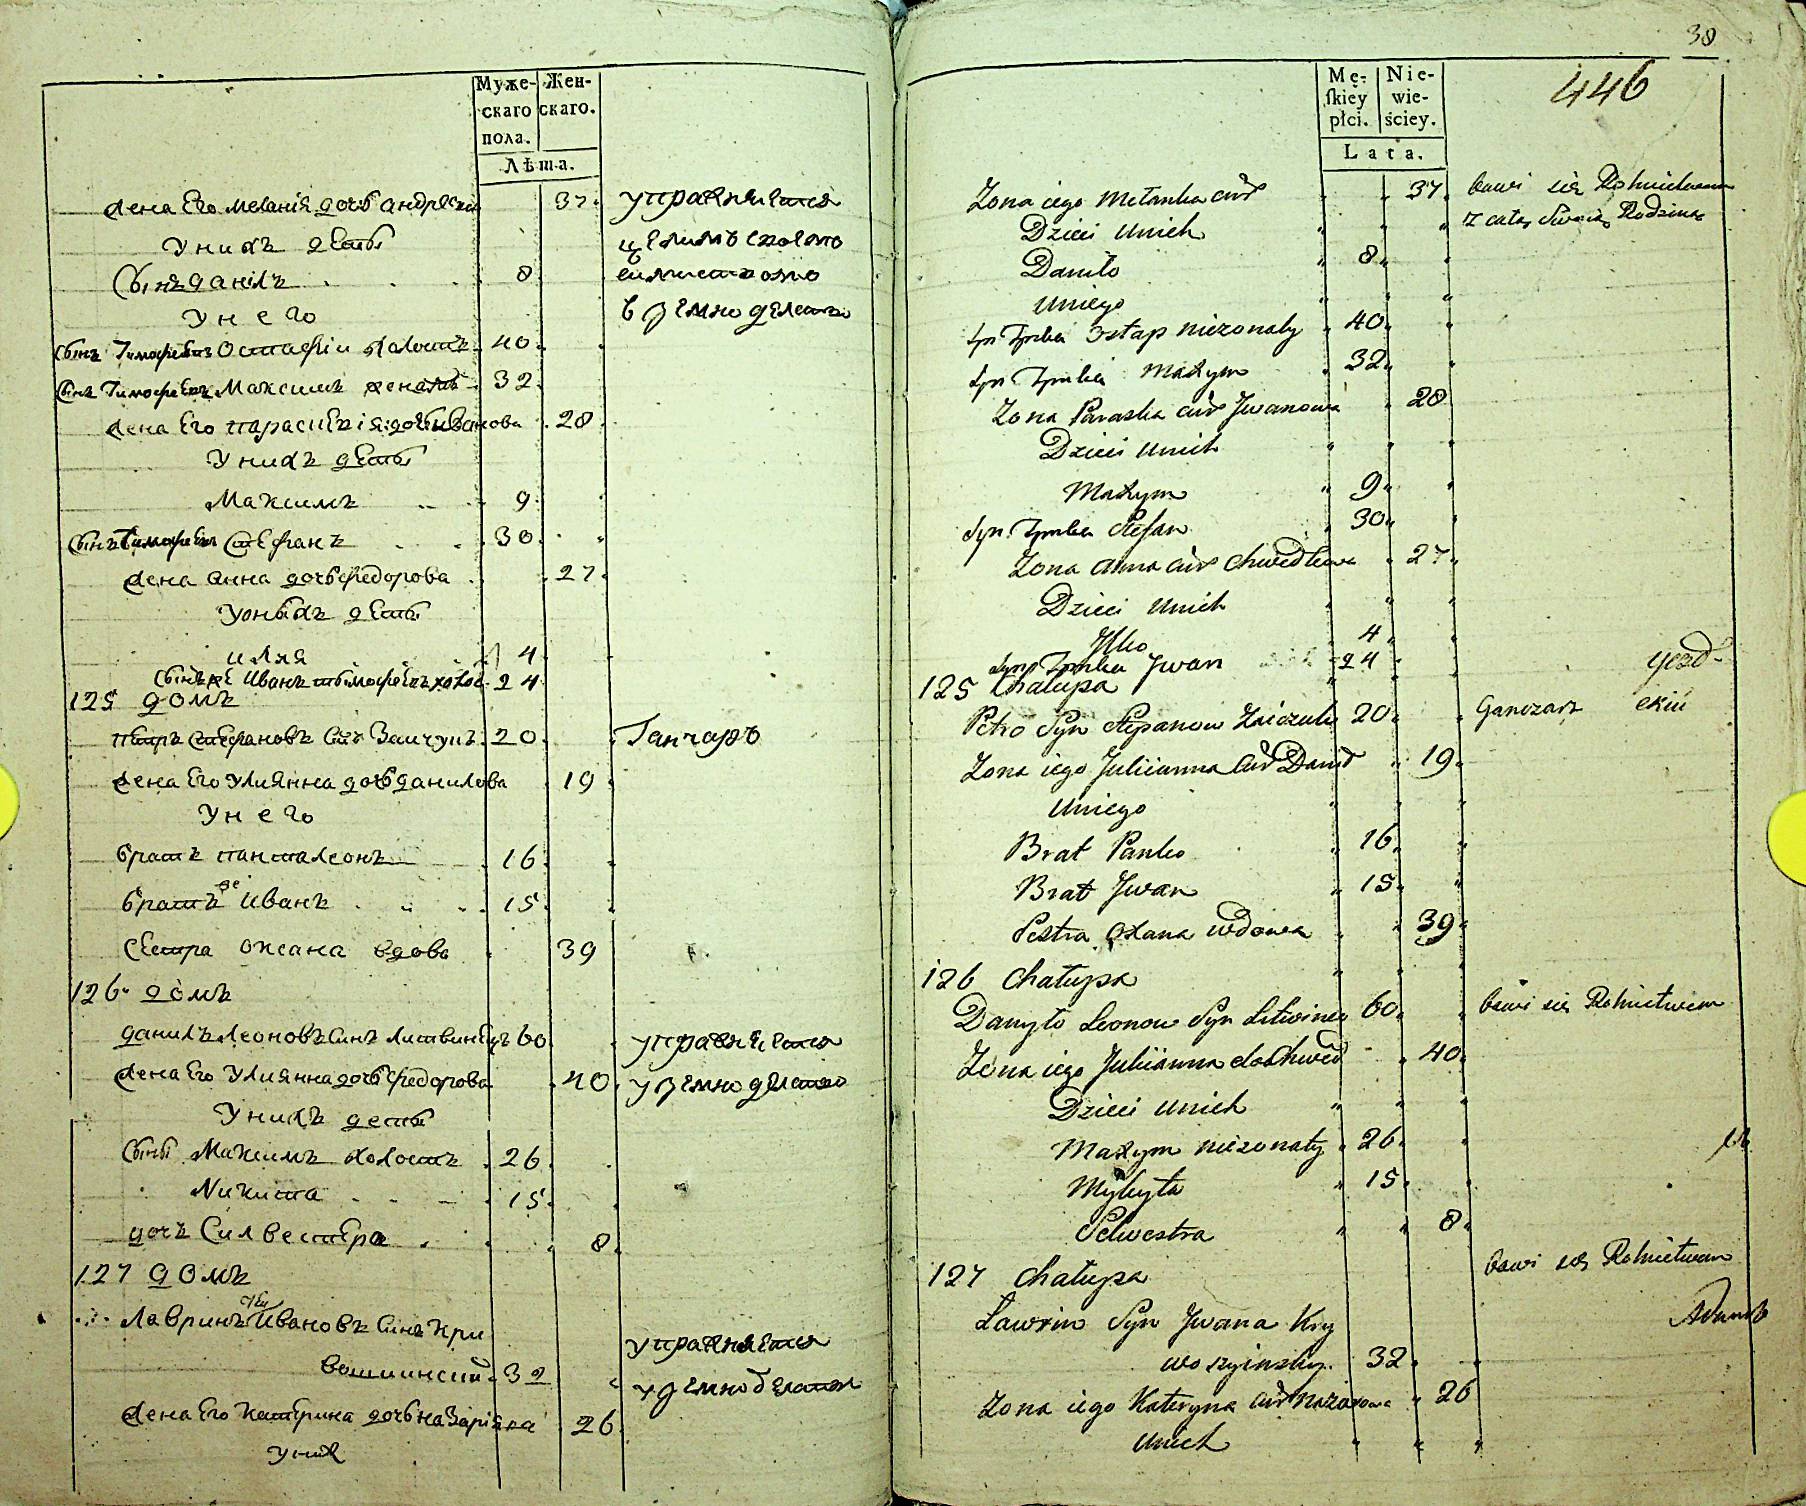 Муже-
скаго
пола.
Жен-
скаго.
Лѣта.
жена Его Меланія дочь андрѣева 37 управляется
Унихъ дети цѣлимъ своемъ
Сынъ данілъ 8 симействомъ
Унего в земно делстъ
Сынъ Тимофеевъ Остафіи холостъ 40
Сынъ Тимофеевъ Максимъ женатъ 32
жена Его параскевія дочь иванова 28
Унихъ дети
Максимъ 9
Сынъ Тимофеевъ Стефанъ 30
жена анна дочь федорова 27
Уоныхъ дети
илия 4
Сынъ же Иванъ тимофеевъ холос 24
125 домъ
петръ стефановъ Синъ Заичукъ 20 Ганчаръ
жена Его Улиянна дочь данилова 19
Унего
братъ панталеонъ 16
братъ же Иванъ 15
сестра оксана вдова 39
126 домъ
данилъ Леоновъ Синъ Литвинецъ 60 управляется
жена Его Улиянна дочь федорова 40 у земно делство
Унихъ дети
Сыны Максимъ холостъ 26
Никита 15
дочь Силвестра 8
127 домъ
Лавринъ Ивановъ Синъ Кри управляется
вошинский 32
жена Его Катерина дочь назаріява 26
Уних
38
446
Mę-
ſkiey
płci.
Nie-
wie-
ściey.
Lata.
Zona iego Melanka cur 37 bawi się Rolnictwem
Dzieci Unich z całą Swoią Rodziną
Daniło 8
Uniego
Syn Tymka Ostap niezonaty 40
Syn Tymka Maxym 32
Zona Paraska cur Jwanowa 28
Dzieci Unich
Maxym 9
Syn Tymka Stefan 30
Zona Anna cur Chwedkowa 27
Dzieci Unich
Jlko 4
Syn Tymka Jwan 24
125 Chałupa
Petro Syn Stepanow Zaiczuk 20 Ganczarz
Zona iego Juliianna Cur Danił 19
Uniego
Brat Panko 16
Brat Jwan 15
Sestra Oxana wdowa 39
126 Chałupa
Danyło Leonow Syn Litwinec 60 bawi się Rolnictwem
Zona iego Juliianna do Chwed 40
Dzieci Unich
Maxym niezonaty 26
Mykyta 15
Selwestra 8
127 Chałupa bawi się Rolnictwem
Ławrin Syn Jwana Kry
woszyinskiy 32
Zona iego Kateryna cur Nazarowa 26
Unich